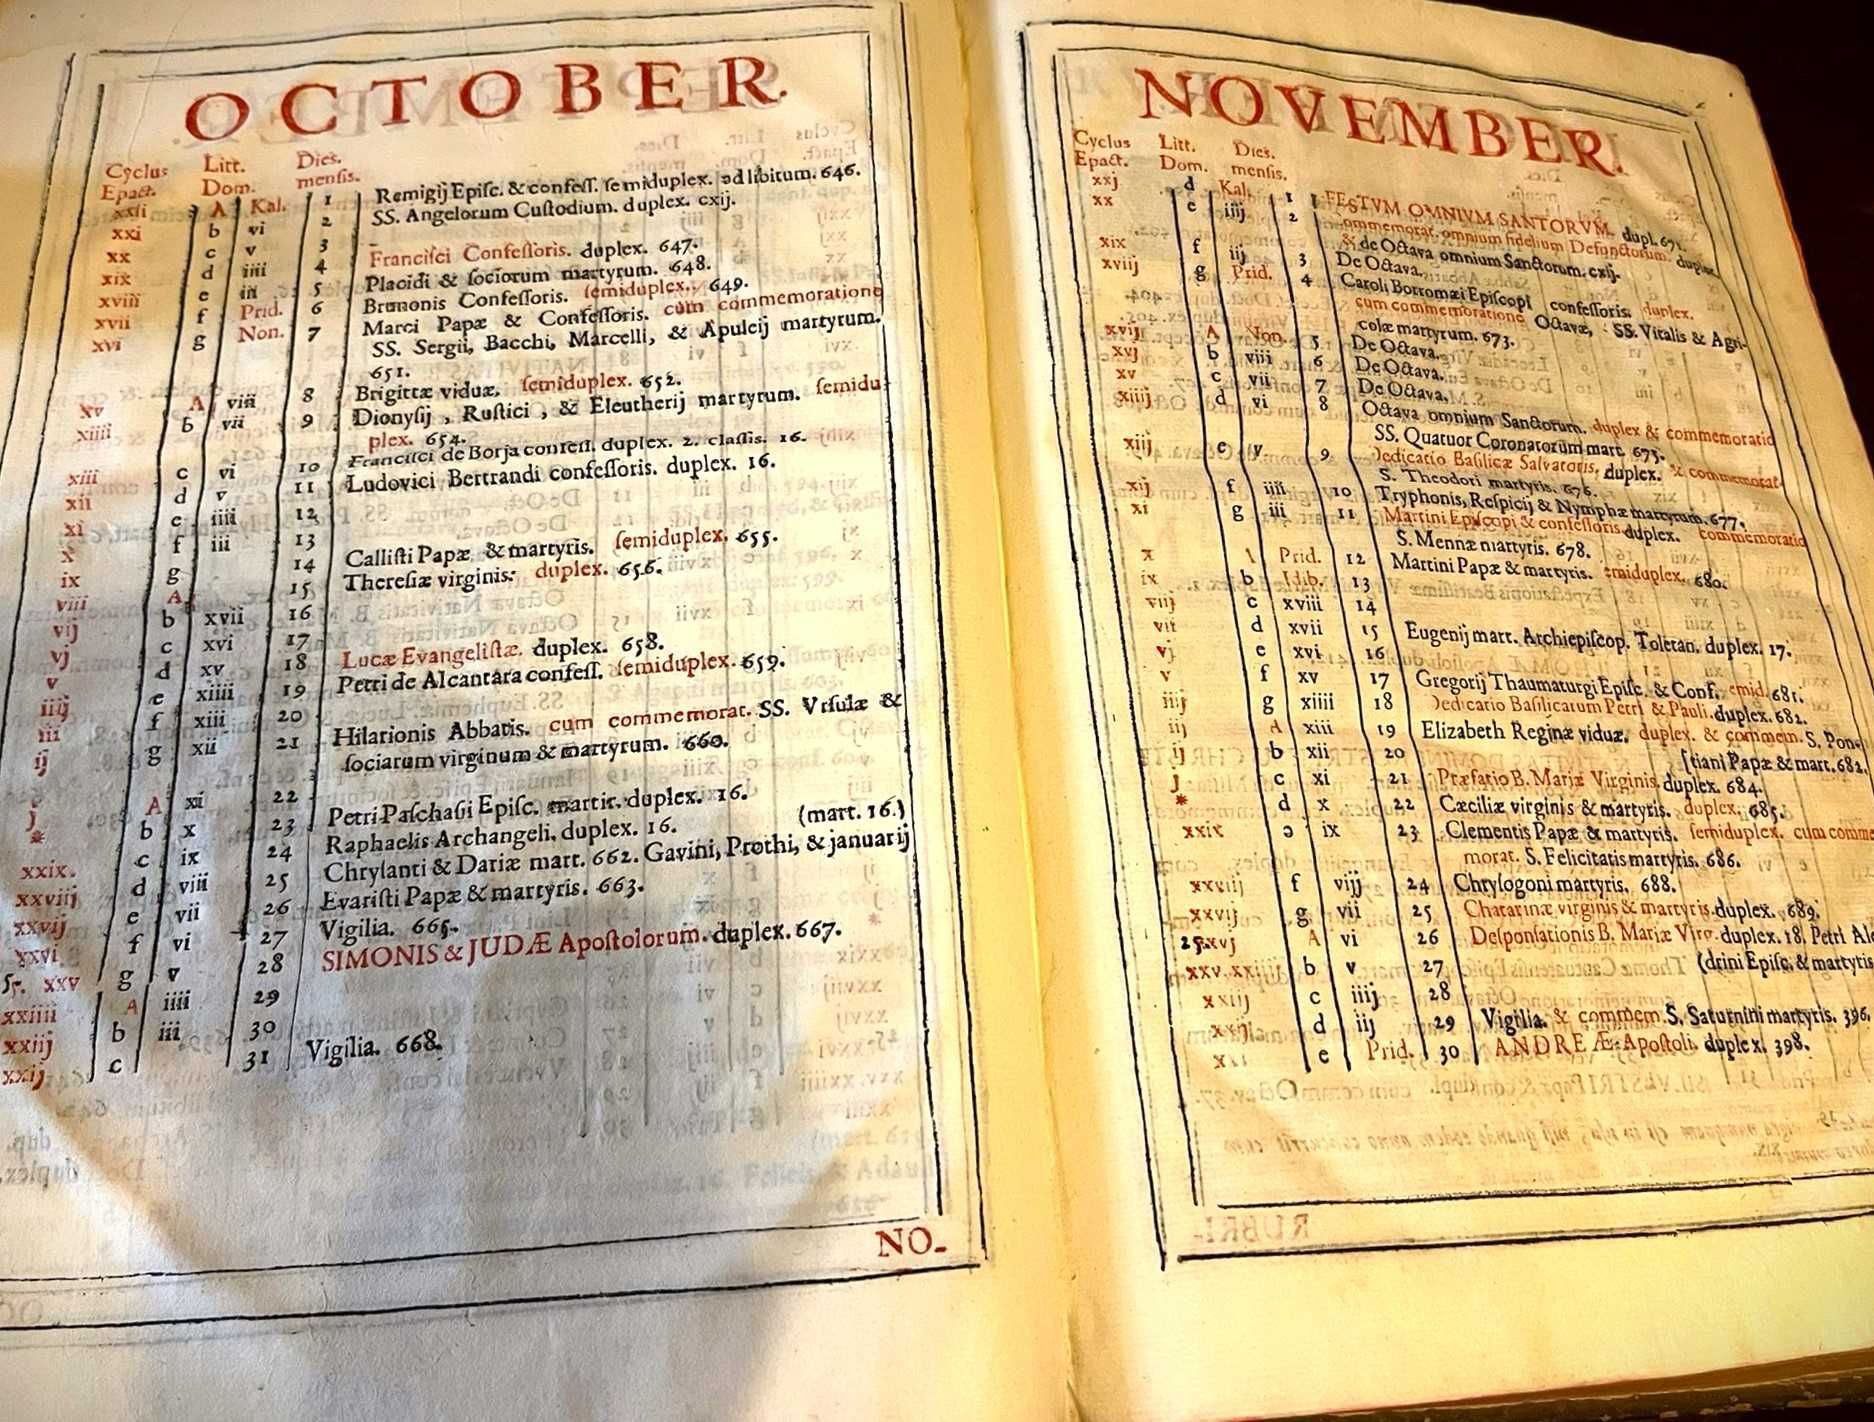 OCTOBER.
Cyclus Litt. Dies.
Epact. Dom. mensis.
xxii A Kal. 1 Remigij Episc. & confess. semiduplex. ad libitum. 646.
xxi b vi 2 SS. Angelorum Custodium. duplex. cxij.
xx c v 3
xix d iiii 4 Francisci Confessoris. duplex. 647.
xviii e iii 5 Placidi & sociorum martyrum. 648.
xvii f Prid. 6 Brunonis Confessoris. semiduplex. 649.
xvi g Non. 7 Marci Papæ & Confessoris. cum commemoratione
SS. Sergii, Bacchi, Marcelli, & Apuleij martyrum.
651.
xv A viii 8 Brigittæ viduæ. semiduplex. 652.
xiiii b vii 9 Dionysij, Rustici, & Eleutherij martyrum. semidu-
plex. 654.
xiii c vi 10 Francisci de Borja confess. duplex. 2. classis. 16.
xii d v 11 Ludovici Bertrandi confessoris. duplex. 16.
xi e iiii 12
x f iii 13
ix g 14 Callisti Papæ & martyris. semiduplex. 655.
viii A 15 Theresiæ virginis. duplex. 656.
vij b xvii 16
vj c xvi 17
v d xv 18 Lucæ Evangelistæ. duplex. 658.
iiij e xiiii 19 Petri de Alcantara confess. semiduplex. 659.
iii f xiii 20
ij g xii 21 Hilarionis Abbatis. cum commemorat. SS. Ursulæ &
sociarum virginum & martyrum. 660.
j A xi 22
* b x 23 Petri Paschasii Episc. martir. duplex. 16.
xxix. c ix 24 Raphaelis Archangeli. duplex. 16. (mart. 16.)
xxviij d viii 25 Chrysanti & Dariæ mart. 662. Gavini, Prothi, & januarij
xxvij e vii 26 Evaristi Papæ & martyris. 663.
xxvi f vi 27 Vigilia. 665.
xxv g v 28 SIMONIS & JUDÆ Apostolorum. duplex. 667.
xxiiii A iiii 29
xxiij b iii 30
xxij c 31 Vigilia. 668.
NO-
NOVEMBER.
Cyclus Litt. Dies.
Epact. Dom. mensis.
xxj d Kal. 1 FESTVM OMNIVM SANTORVM. dupl. 671.
xx e iiij 2 ommemorat. omnium fidelium Defunctorum. duplex.
& de Octava omnium Sanctorum. cxij.
xix f iij 3 De Octava.
xviij g Prid. 4 Caroli Borromæi Episcopi confessoris. duplex.
cum commemoratione Octavæ, SS. Vitalis & Agri-
colæ martyrum. 673.
xvij A Non. 5 De Octava.
xvj b viii 6 De Octava.
xv c vii 7 De Octava.
xiiij d vi 8 Octava omnium Sanctorum. duplex & commemoratio
SS. Quatuor Coronatorum mart. 675.
xiij e v 9 Dedicatio Basilicæ Salvatoris. duplex. & commemorat.
S. Theodori martyris. 676.
xij f iiii 10 Tryphonis, Respicij & Nymphæ martyrum. 677.
xi g iii 11 Martini Episcopi & confessoris. duplex. commemoratio
S. Mennæ martyris. 678.
x A Prid. 12 Martini Papæ & martyris. emiduplex. 680.
ix b Idib. 13
viij c xviii 14
vii d xvii 15 Eugenij mart. Archiepiscop. Toletan. duplex. 17.
vj e xvi 16
v f xv 17 Gregorij Thaumaturgi Episc. & Conf. emid. 681.
iiij g xiiii 18 Dedicatio Basilicarum Petri & Pauli. duplex. 682.
iij A xiii 19 Elizabeth Reginæ viduæ. duplex. & commem. S. Pon-
ij b xii 20 [tiani Papæ & mart. 682.
j c xi 21 Præsatio B. Mariæ Virginis. duplex. 684.
* d x 22 Cæciliæ virginis & martyris. duplex. 685.
xxix e ix 23 Clementis Papæ & martyris. semiduplex. cum comme
morat. S. Felicitatis martyris. 686.
xxviij f viij 24 Chrysogoni martyris. 688.
xxvij g vii 25 Chatarinæ virginis & martyris. duplex. 689.
25. xxvj A vi 26 Desponsationis B. Mariæ Virg. duplex. 18. Petri Ale
xxv. xxiiij b v 27 (drini Episc. & martyris
xxiij c iiij 28
xxij d iij 29 Vigilia. & commem. S. Saturnini martyris. 396.
xxi e Prid. 30 ANDREÆ Apostoli. duplex. 398.